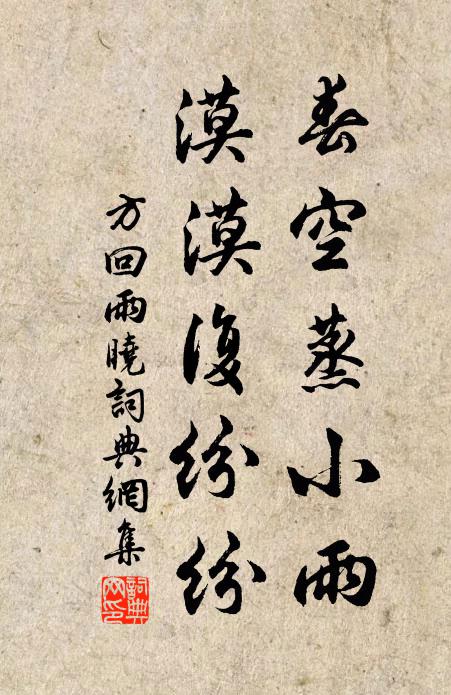 春空蒸小雨
漠漠復紛紛
方回雨曉詞典網集
詞典
网印